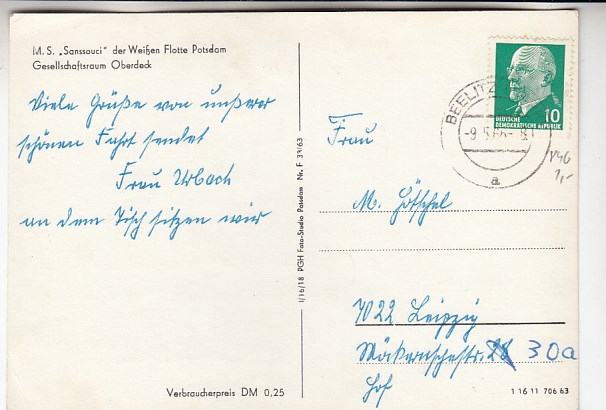 M. S. „Sanssouci" der Weißen Flotte Potsdam
Gesellschaftsraum Oberdeck
Viele Grüße von unserer
schönen Fahrt sendet
Frau Urbach
an dem Tisch sitzen wir
Verbraucherpreis DM 0,25
I/16/18 PGH Foto-Studio Potsdam Nr. F 39/63
BEELITZ
a
10
DEUTSCHE
DEMOKRATISCHE REPUBLIK
1,-
Frau
M.
7022 Leipzig
30a
Hof
1 16 11 706 63